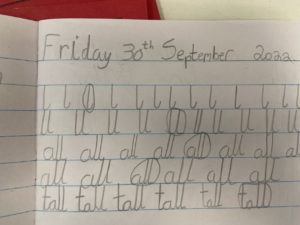 Friday 30th September 2022
l l l l l l l l l l l
ll ll ll ll ll ll ll ll ll
all all all all all all all al
all all all all all all
tall tall tall tall tall tall